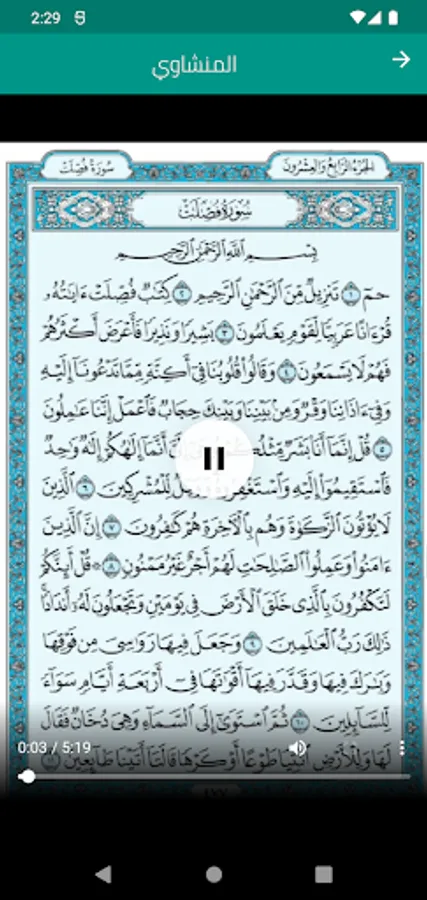 2:29
المنشاوي
سُورَةُ فُصِّلَتْ
الجُزْءُ الرَّابِعُ وَالعِشْرُونَ
سُورَةُ فُصِّلَتْ
بِسْمِ اللَّهِ الرَّحْمَٰنِ الرَّحِيمِ
حمٓ ١ تَنزِيلٌ مِّنَ ٱلرَّحْمَٰنِ ٱلرَّحِيمِ ٢ كِتَٰبٌ فُصِّلَتْ ءَايَٰتُهُۥ
قُرْءَانًا عَرَبِيًّا لِّقَوْمٍ يَعْلَمُونَ ٣ بَشِيرًا وَنَذِيرًا فَأَعْرَضَ أَكْثَرُهُمْ
فَهُمْ لَا يَسْمَعُونَ ٤ وَقَالُوا۟ قُلُوبُنَا فِىٓ أَكِنَّةٍ مِّمَّا تَدْعُونَآ إِلَيْهِ
وَفِىٓ ءَاذَانِنَا وَقْرٌ وَمِنۢ بَيْنِنَا وَبَيْنِكَ حِجَابٌ فَٱعْمَلْ إِنَّنَا عَٰمِلُونَ
٥ قُلْ إِنَّمَآ أَنَا۠ بَشَرٌ مِّثْلُكُمْ أَنَّمَآ إِلَٰهُكُمْ إِلَٰهٌ وَٰحِدٌ
فَٱسْتَقِيمُوٓا۟ إِلَيْهِ وَٱسْتَغْفِرُوهُ لِّلْمُشْرِكِينَ ٦ ٱلَّذِينَ
لَا يُؤْتُونَ ٱلزَّكَوٰةَ وَهُم بِٱلْـَٔاخِرَةِ هُمْ كَٰفِرُونَ ٧ إِنَّ ٱلَّذِينَ
ءَامَنُوا۟ وَعَمِلُوا۟ ٱلصَّٰلِحَٰتِ لَهُمْ أَجْرٌ غَيْرُ مَمْنُونٍ ٨ ۞ قُلْ أَئِنَّكُمْ
لَتَكْفُرُونَ بِٱلَّذِى خَلَقَ ٱلْأَرْضَ فِى يَوْمَيْنِ وَتَجْعَلُونَ لَهُۥٓ أَندَادًا
ذَٰلِكَ رَبُّ ٱلْعَٰلَمِينَ ٩ وَجَعَلَ فِيهَا رَوَٰسِىَ مِن فَوْقِهَا
وَبَٰرَكَ فِيهَا وَقَدَّرَ فِيهَآ أَقْوَٰتَهَا فِىٓ أَرْبَعَةِ أَيَّامٍ سَوَآءً
لِّلسَّآئِلِينَ ١٠ ثُمَّ ٱسْتَوَىٰٓ إِلَى ٱلسَّمَآءِ وَهِىَ دُخَانٌ فَقَالَ
0:03 / 5:19
لَهَا وَلِلْأَرْضِ ٱئْتِيَا طَوْعًا أَوْ كَرْهًا قَالَتَآ أَتَيْنَا طَآئِعِينَ ١١
٤٧٧